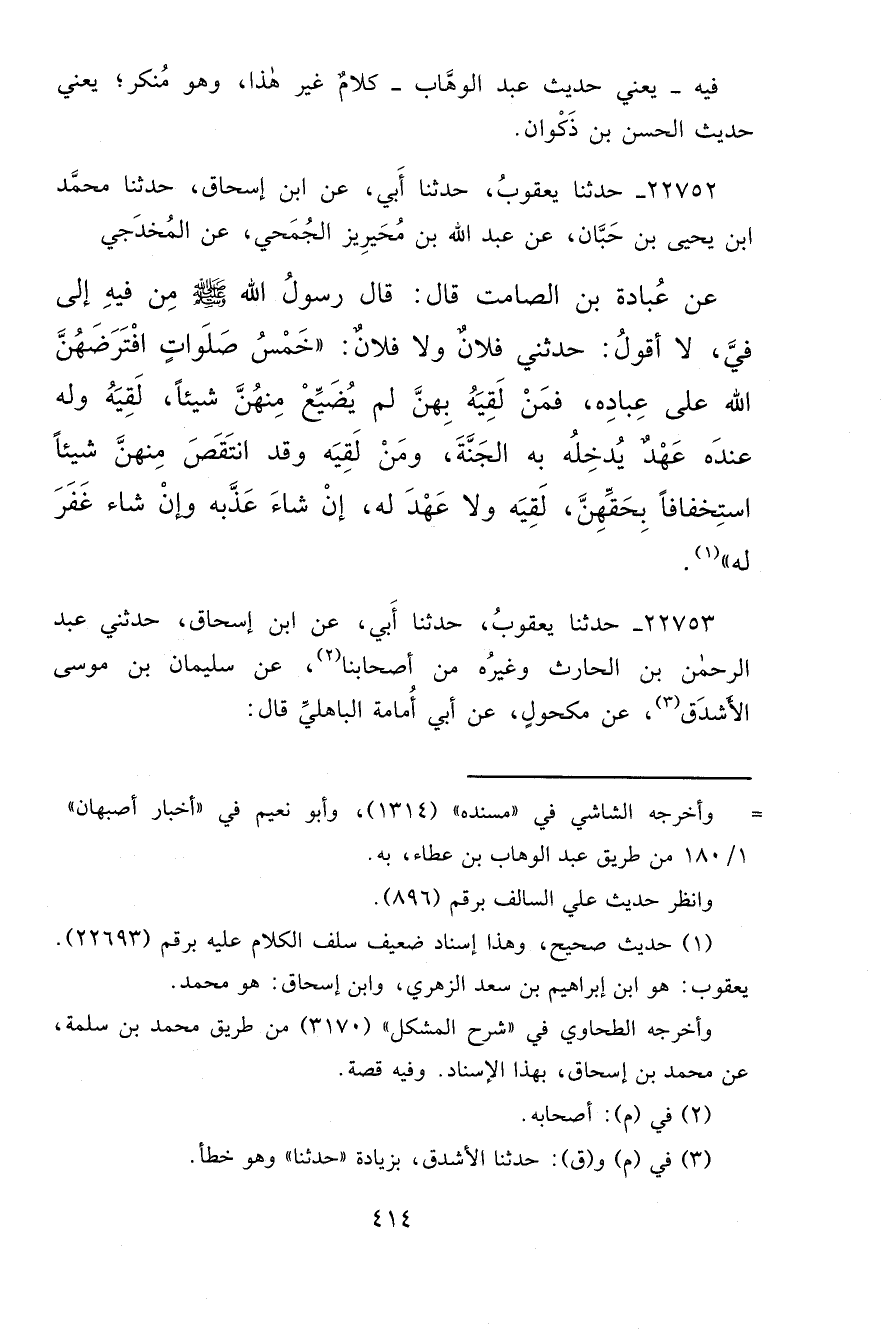 فيه ـ يعني حديث عبد الوهَّاب ـ كلامٌ غير هٰذا، وهو مُنكر؛ يعني
حديث الحسن بن ذَكْوان.
٢٢٧٥٢ـ حدثنا يعقوبُ، حدثنا أَبي، عن ابن إسحاق، حدثنا محمَّد
ابن يحيى بن حَبَّان، عن عبد الله بن مُحَيرِيز الجُمَحي، عن المُخدَجي
عن عُبادة بن الصامت قال: قال رسولُ الله ﷺ مِن فيهِ إلى
فيَّ، لا أقولُ: حدثني فلانٌ ولا فلانٌ: «خَمْسُ صَلَواتٍ افْتَرَضَهُنَّ
الله على عِبادِه، فمَنْ لَقِيَهُ بِهنَّ لم يُضَيِّعْ مِنهُنَّ شيئاً، لَقِيَهُ وله
عندَه عَهْدٌ يُدخِلُه به الجَنَّةَ، ومَنْ لَقِيَه وقد انتَقَصَ مِنهنَّ شيئاً
استِخفافاً بِحَقِّهِنَّ، لَقِيَه ولا عَهْدَ له، إنْ شاءَ عَذَّبه وإنْ شاء غَفَرَ
له»(١).
٢٢٧٥٣ـ حدثنا يعقوبُ، حدثنا أَبي، عن ابن إسحاق، حدثني عبد
الرحمٰن بن الحارث وغيرُه من أصحابنا(٢)، عن سليمان بن موسى
الأَشدَق(٣)، عن مكحولٍ، عن أبي أُمامة الباهليِّ قال:
= وأخرجه الشاشي في «مسنده» (١٣١٤)، وأبو نعيم في «أخبار أصبهان»
١/ ١٨٠ من طريق عبد الوهاب بن عطاء، به.
وانظر حديث علي السالف برقم (٨٩٦).
(١) حديث صحيح، وهذا إسناد ضعيف سلف الكلام عليه برقم (٢٢٦٩٣).
يعقوب: هو ابن إبراهيم بن سعد الزهري، وابن إسحاق: هو محمد.
وأخرجه الطحاوي في «شرح المشكل» (٣١٧٠) من طريق محمد بن سلمة،
عن محمد بن إسحاق، بهذا الإسناد. وفيه قصة.
(٢) في (م): أصحابه.
(٣) في (م) و(ق): حدثنا الأشدق، بزيادة «حدثنا» وهو خطأ.
٤١٤